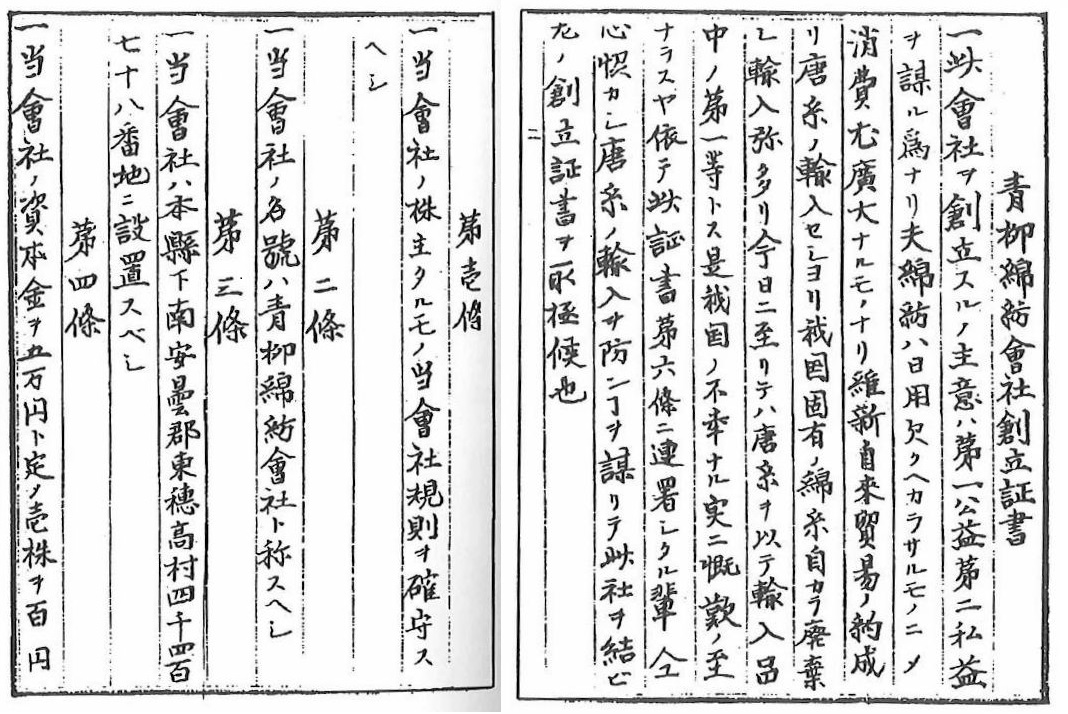 青柳綿紡會社創立証書
一此會社ヲ創立スルノ主意ハ第一公益第二私益
ヲ謀ル為ナリ夫綿紡ハ日用欠クヘカラサルモノニメ
消費尤廣大ナルモノナリ維新自来貿易ノ約成
リ唐糸ノ輸入セシヨリ我国固有ノ綿糸自カラ廃棄
シ輸入弥タタリ今日ニ至リテハ唐糸ヲ以テ輸入品
中ノ第一等トス是我国ノ不幸ナル実ニ慨歎ノ至
ナラスヤ依テ此証書第六條ニ連署シタル輩仝
心憤カシ唐糸ノ輸入ヲ防ニヿヲ謀リテ此社ヲ結ビ
左ノ創立証書ヲ取極候也
第壱條
一当會社ノ株主タルモノ当會社規則ヲ確守ス
ヘシ
第二條
一当會社ノ名號ハ青柳綿紡會社ト称スヘシ
第三條
一当會社ハ本縣下南安曇郡東穂高村四千四百
七十八番地ニ設置スベシ
第四條
一当會社ノ資本金ヲ五万円ト定メ壱株ヲ百円